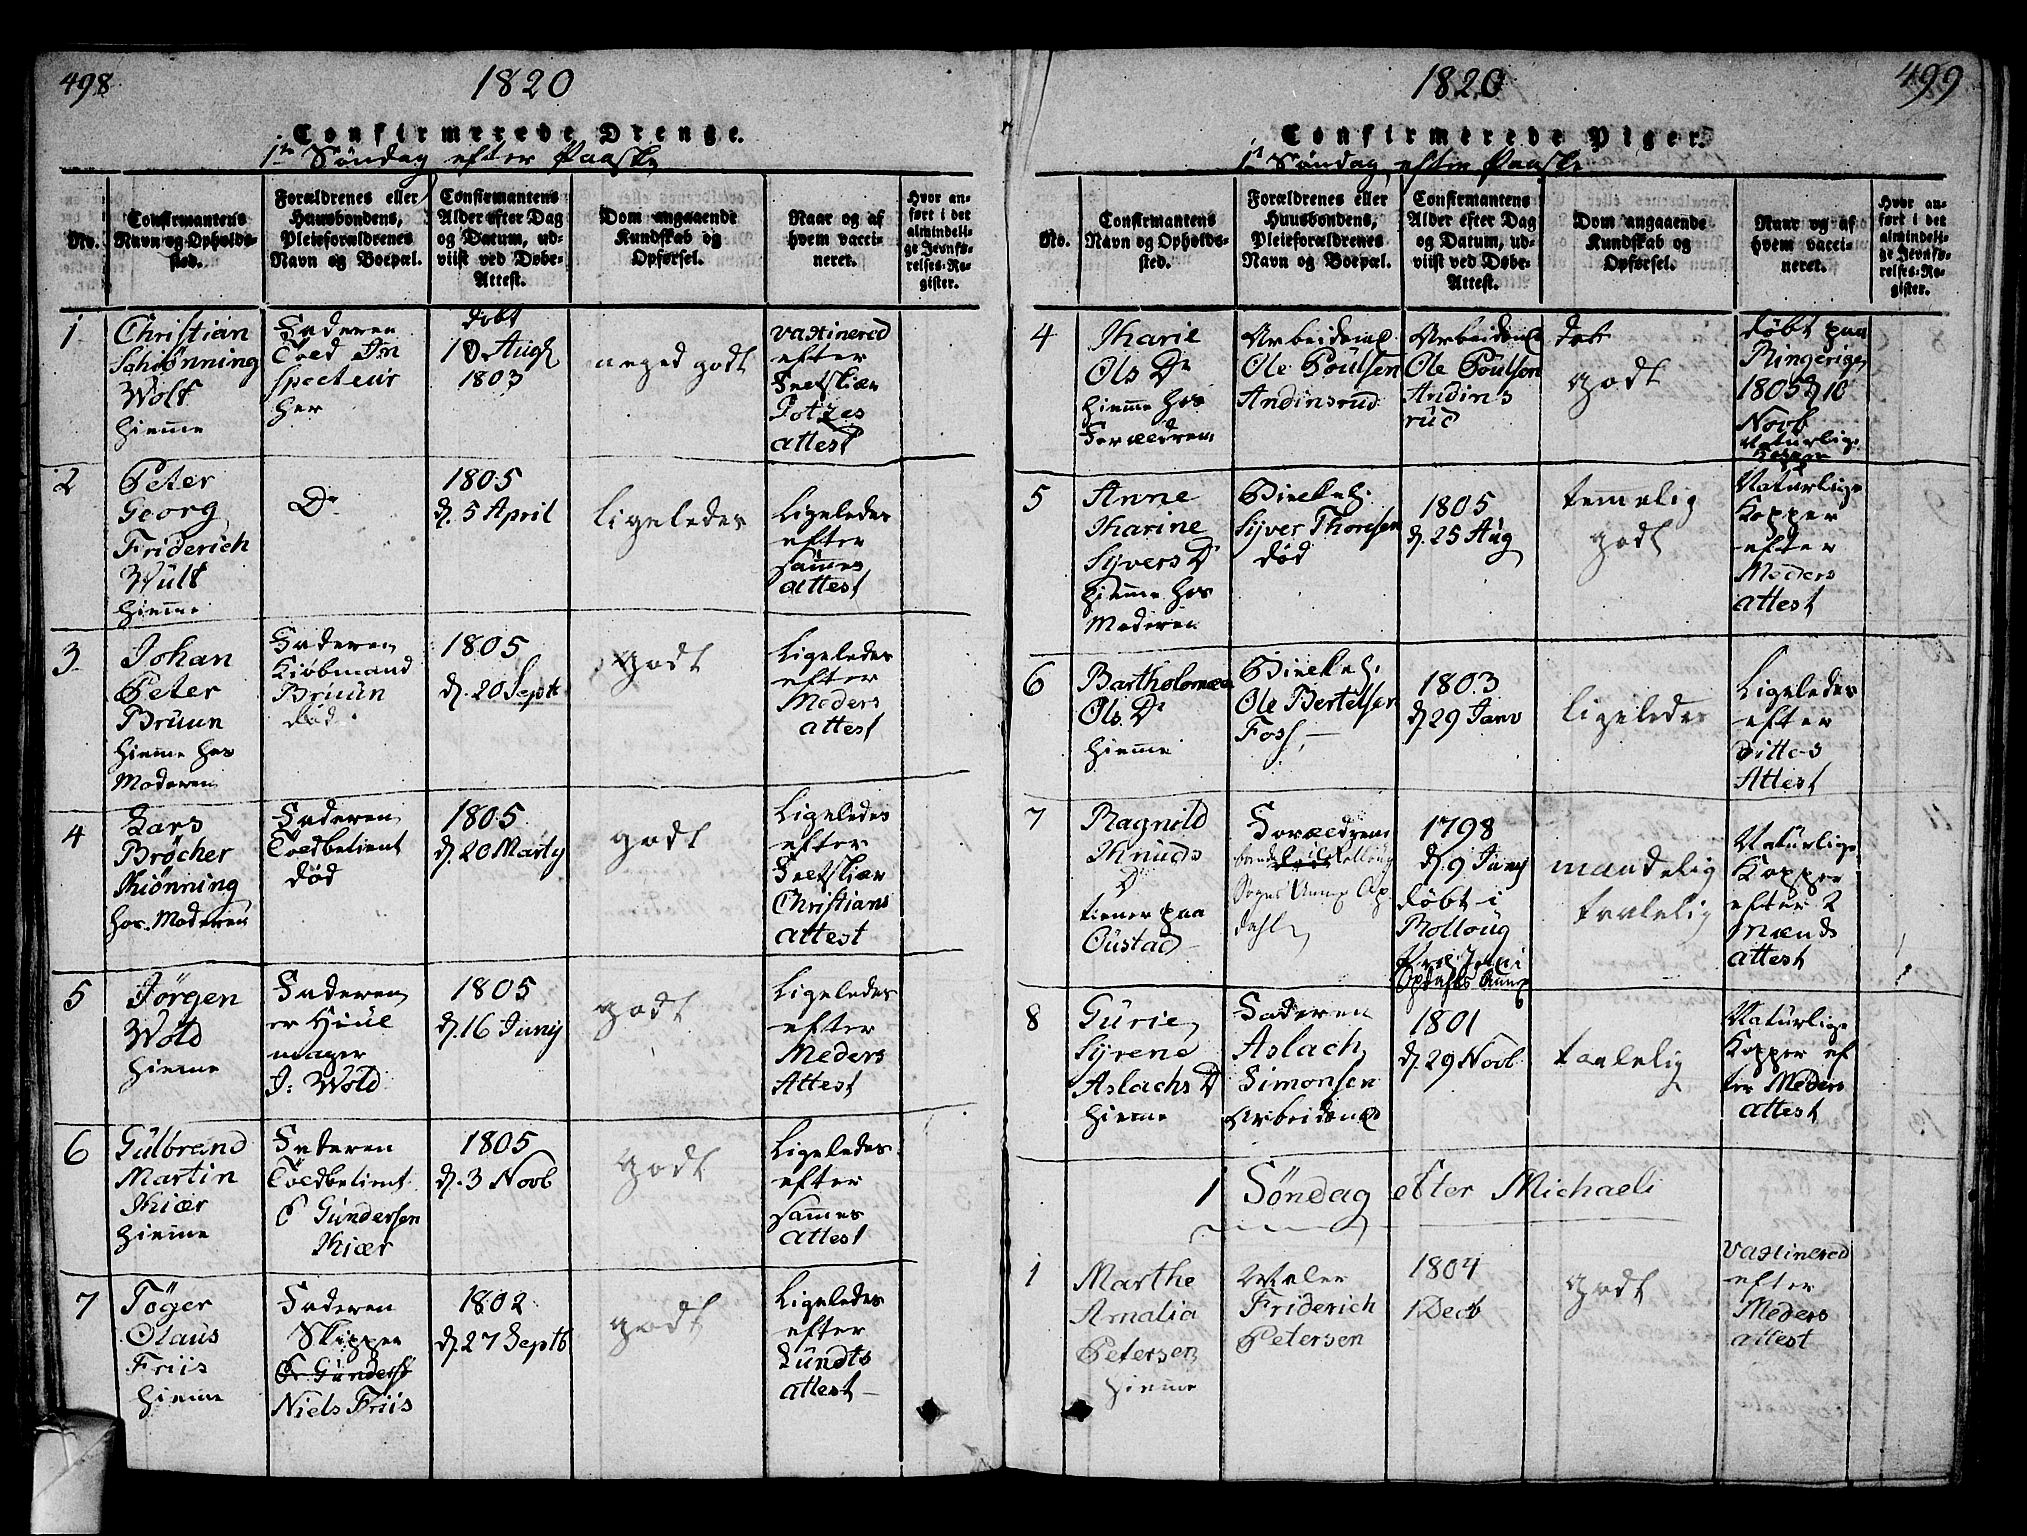 498
1820
Confirmerede Drenge.
1te Søndag efter Paaske
No.
Confirmantens
Navn og Opholds-
sted.
Forældrenes eller
Huusbondens,
Pleieforældrenes
Navn og Boepæl.
Confirmantens
Alder efter Dag
og Datum, ud-
viist ved Døbe-
Attest.
Dom angaaende
Kundskab og
Opførsel.
Naar og af
hvem vacci-
neret.
Hvor an-
ført i det
almindeli-
ge Jevnfø-
relses-Re-
gister.
1
Christian
Schiønning
Wolt
hiemme
Faderen
Told In
specteur
her
døbt
10 Augt
1803
meget godt
vaxinered
efter
Totzes
attest
2
Peter
Georg
Friderich
Wült
hiemme
Do
1805
d. 5 April
ligeledes
Ligeledes
efter
sammes
attest
3
Johan
Peter
Bruun
hiemme hos
Moderen
Faderen
Kiøbmand
Bruun
død
1805
d. 20 Sept
godt
Ligeledes
efter
Meders
attest
4
Lars
Brøcher
Kiønning
hos Moderen
Faderen
Toldbetient
død
1805
d. 20 Marty
godt
Ligeledes
efter
Christians
attest
5
Jørgen
Wold
hiemme
Faderen
er Hiul
mager
J: Wold
1805
d. 16 Juny
godt
Ligeledes
efter
Meders
Attest
6
Gulbrand
Martin
Kiær
hiemme
Faderen
Toldbetient
Gundersen
Kiær
1805
d. 3 Novb
godt
Ligeledes
efter
sammes
attest
7
Tøger
Olaus
Friis
hiemme
Faderen
Skipper
Gunders
Niels Friis
1802
d. 27 Septb
godt
Ligeledes
efter
Lundts
attest
499
1820
Confirmerede Piger.
1 Søndag efter Paaske
No.
Confirmantens
Navn og Opholds-
sted.
Forældrenes eller
Huusbondens,
Pleieforældrenes
Navn og Boepæl.
Confirmantens
Alder efter Dag
og Datum, ud-
viist ved Døbe-
Attest.
Dom angaaende
Kundskab og
Opførsel.
Naar og af
hvem vacci-
neret.
Hvor an-
ført i det
almindeli-
ge Jevnfø-
relses-Re-
gister.
4
Karie
Ols Dr
hiemme hos
Forældren
Arbeidsmd
Ole Poulsen
Andinsrud
Arbeidsmd
Ole Poulsen
Andins
rud
godt
døbt paa
Ringerige
1805 d 10
Novb
Naturlige
Kopper
5
Anne
Karine
Syvers D
hiemme hos
Moderen
Syver Thoresen
død
1805
d. 25 Aug
temelig
godt
Naturlige
Kopper
efter
Meders
attest
6
Bartholomæa
Ols. D
hiemme
Ole Bertelsen
Foss
1803
d 29 Janv
ligeledes
Ligeledes
efter
Dittos
Attest
7
Ragnild
Knuds
D
tiener paa
Forældrene
1798
d. 9 Juny
døbt i
Rolloug
maadelig
taalelig
Naturlige
Kopper
efter 2
Mænds
attest
8
Gurie
Syrene
Aslachs D
hiemme
Faderen
Aslach
Simonsen
Arbeidsmd
1801
d. 29 Novb
taalelig
Naturlige
Kopper ef
ter Meders
attest
1 Søndag efter Michaeli
1
Marthe
Amalia
Petersen
hiemme
Maler
Friderich
Petersen
1804
1 Decb
godt
vaxinered
efter
Meders
attest